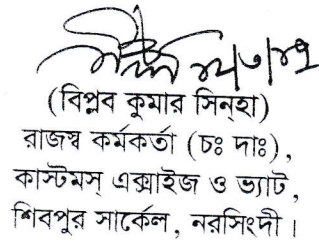 (বিপ্লব কুমার সিন্‌হা)
রাজস্ব কর্মকর্তা (চঃ দাঃ),
কাস্টমস্ এক্সাইজ ও ভ্যাট,
শিবপুর সার্কেল, নরসিংদী।